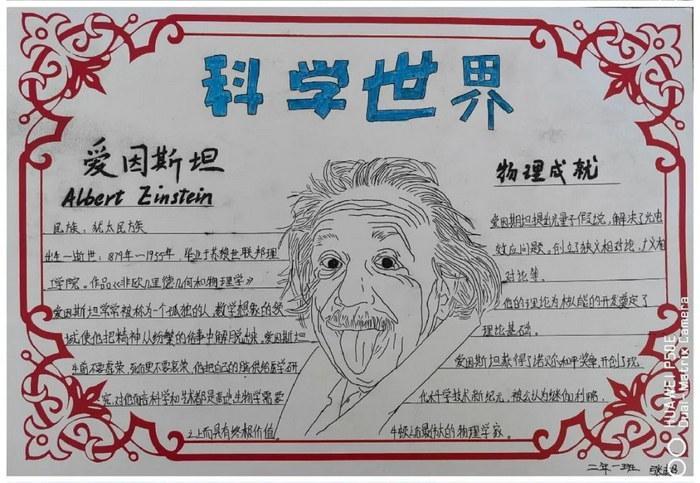 科学世界
爱因斯坦
Albert Einstein
民族：犹太民族
出生—逝世：879年—1955年，毕业于苏黎世联邦理
工学院。作品《非欧几里德几何和物理学》
爱因斯坦常常被称为一个孤独的人，数学想象的领
域使他把精神从纷繁的俗事中解脱出来，爱因斯坦
生前不要虚荣，死后更不要哀荣，他把自己的脑供给医学研
究，对他而言科学和
之上而具有终极价值。
物理成就
爱因斯坦提出光量子假说，解决了光电
效应问题，创立狭义相对论，广义相
对论等。
他的理论为核能的开发奠定了
理论基础。
爱因斯坦获得了诺贝尔和平奖章，开创了现
代科学技术新纪元，被公认为继伽利略、
牛顿之后最伟大的物理学家。
二年一班
HUAWEI P50E
Dual-Matrix Camera